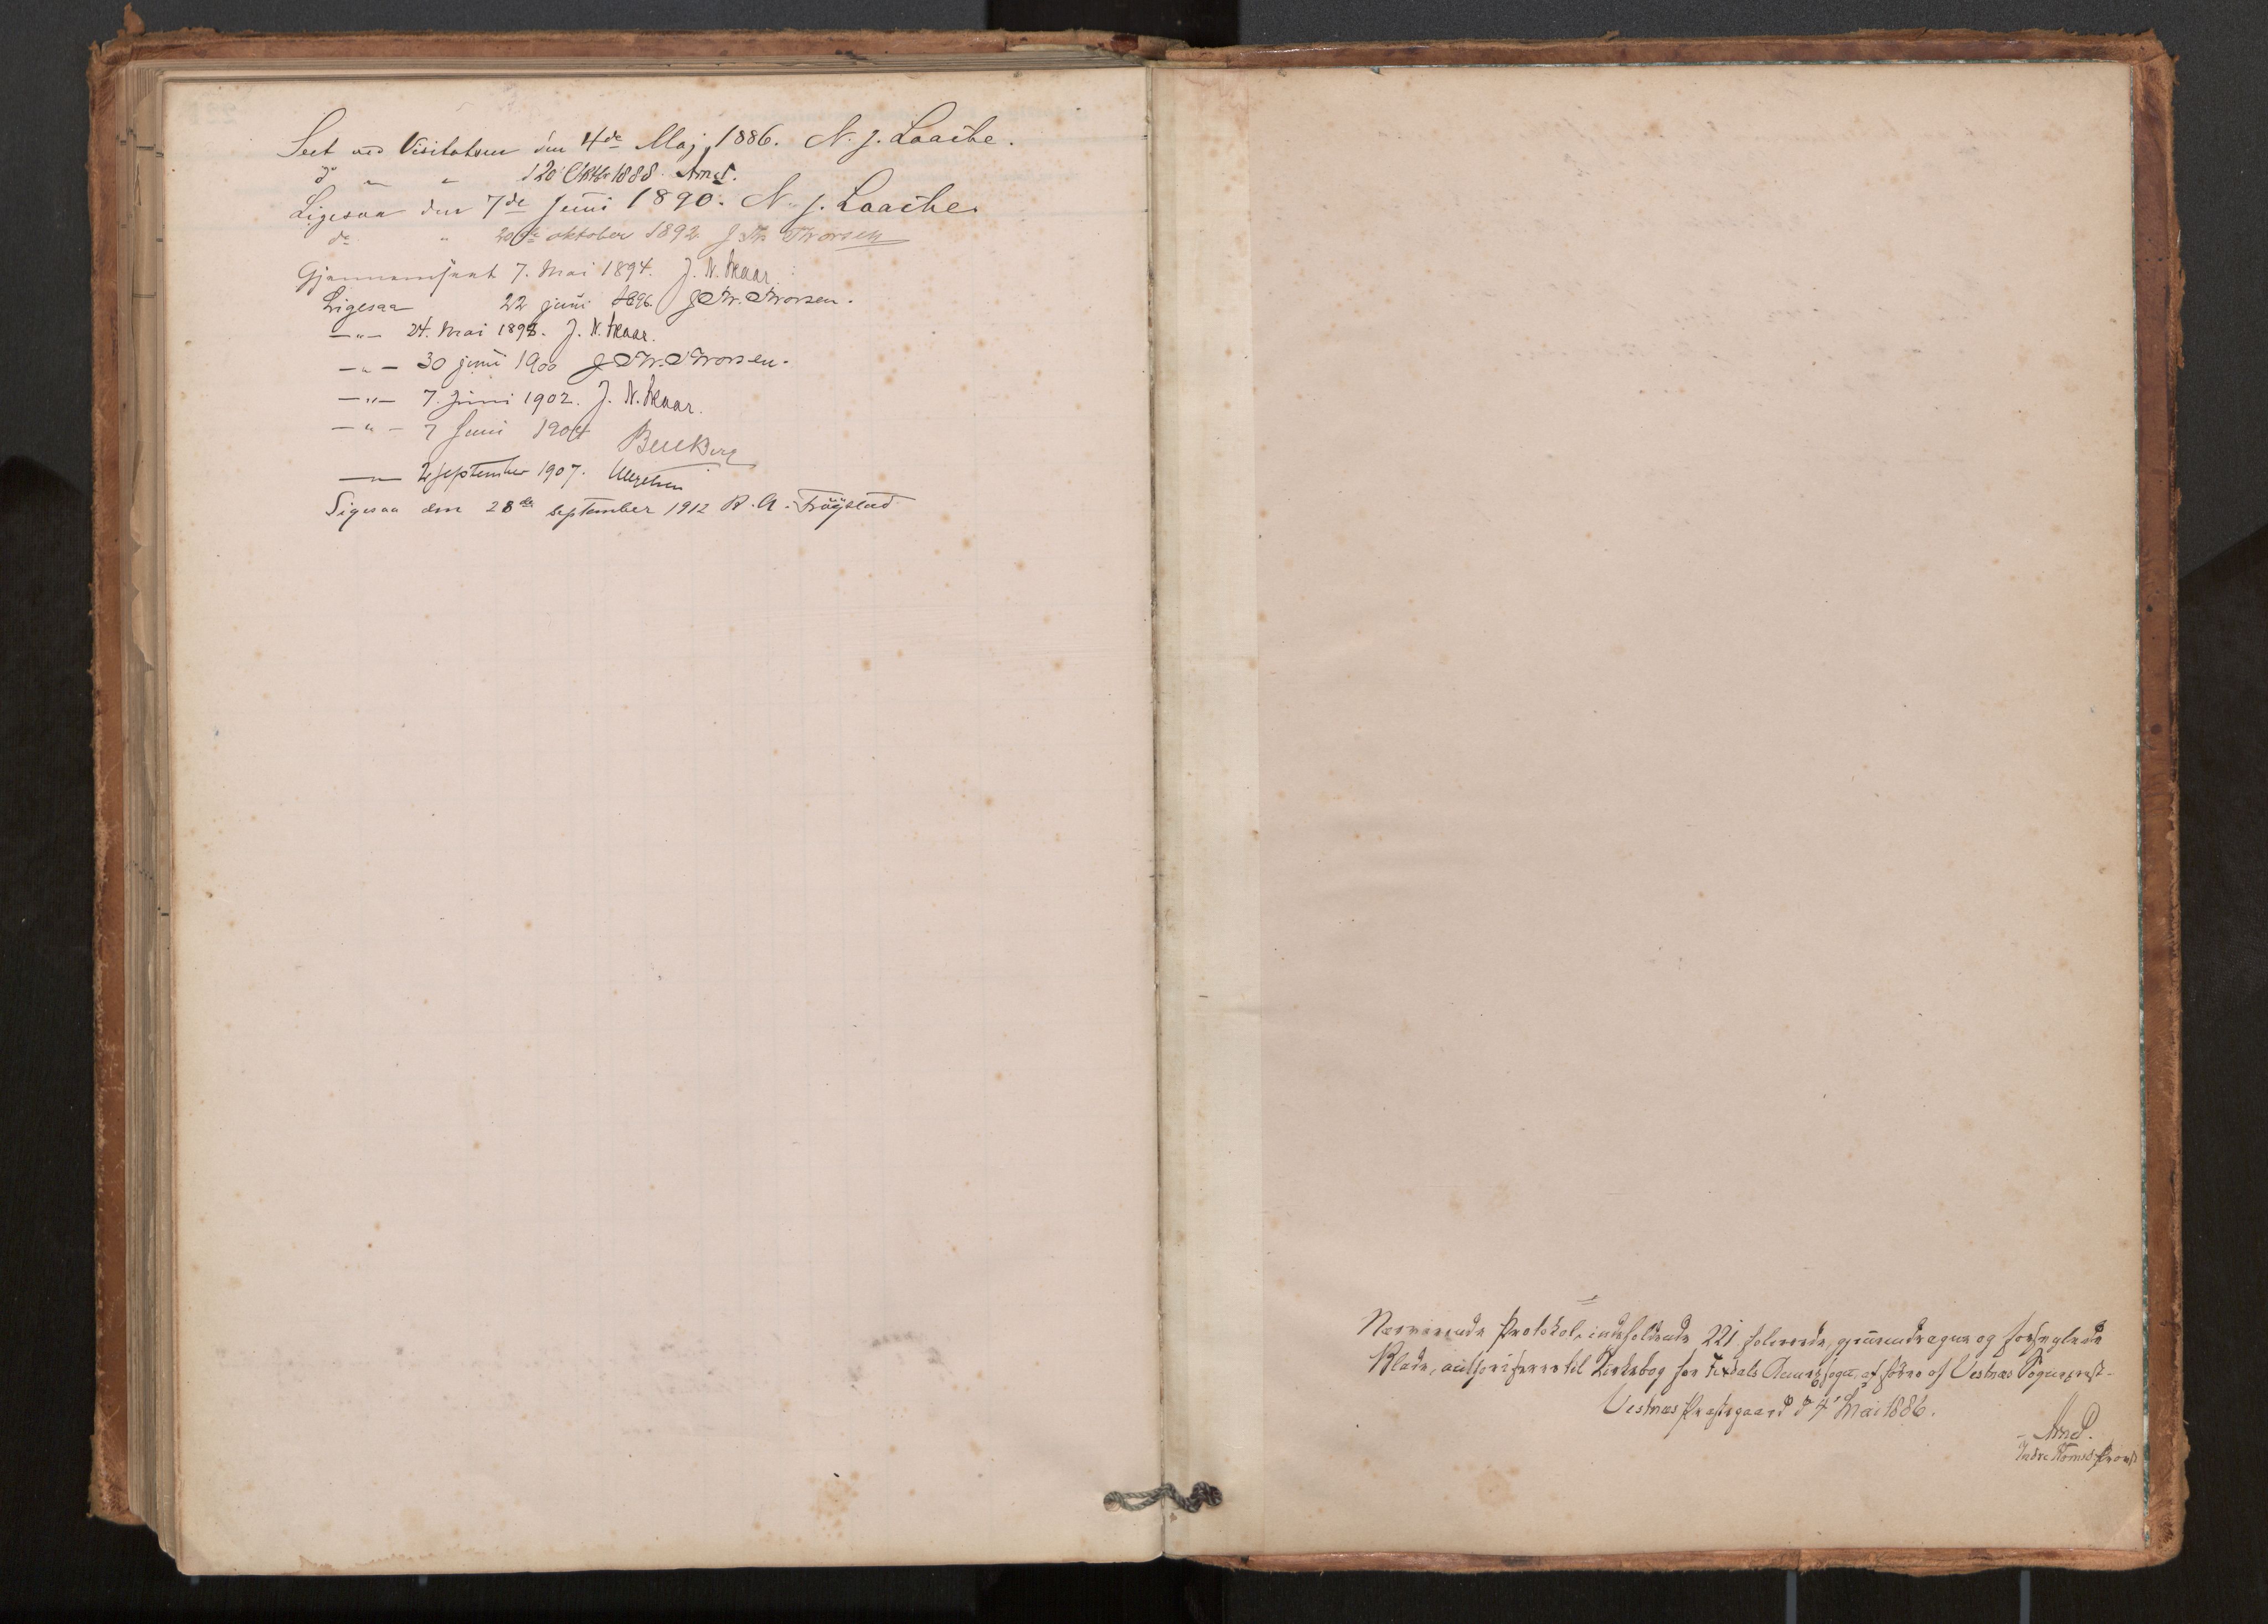 Seet ved Visitatsen den 4de Maj 1886. N. J. Laache.
do " " d 20' Oktbr 1888. Arnet.
Ligesaa den 7de Juni 1890. N. J. Laache.
do " 20de oktober 1892. J Th Thorsen
Gjennemseet 7. Mai 1894. J. N. Skaar.
Ligesaa 22 juni 1896. J Th. Thorsen.
—"— 24. Mai 1898. J. N. Skaar.
—"— 30 juni 1900 J Th. Thorsen.
—"— 7. Juni 1902. J. N. Skaar.
—"— 7 Juni 1904
—"— 2 september 1907.
Ligesaa den 28de september 1912 R. A.
Nærværende Protokol, indeholdende 221 folierede, gjennemdragne og forseglede
Blade, authoriseres til Kirkebog for Fixdals Annexsogn, at føres af Vestnæs Sogneprest.
Vestnæs Præstegaard d 4' Mai 1886.
Arnet.
Indre Romsd. Provsti